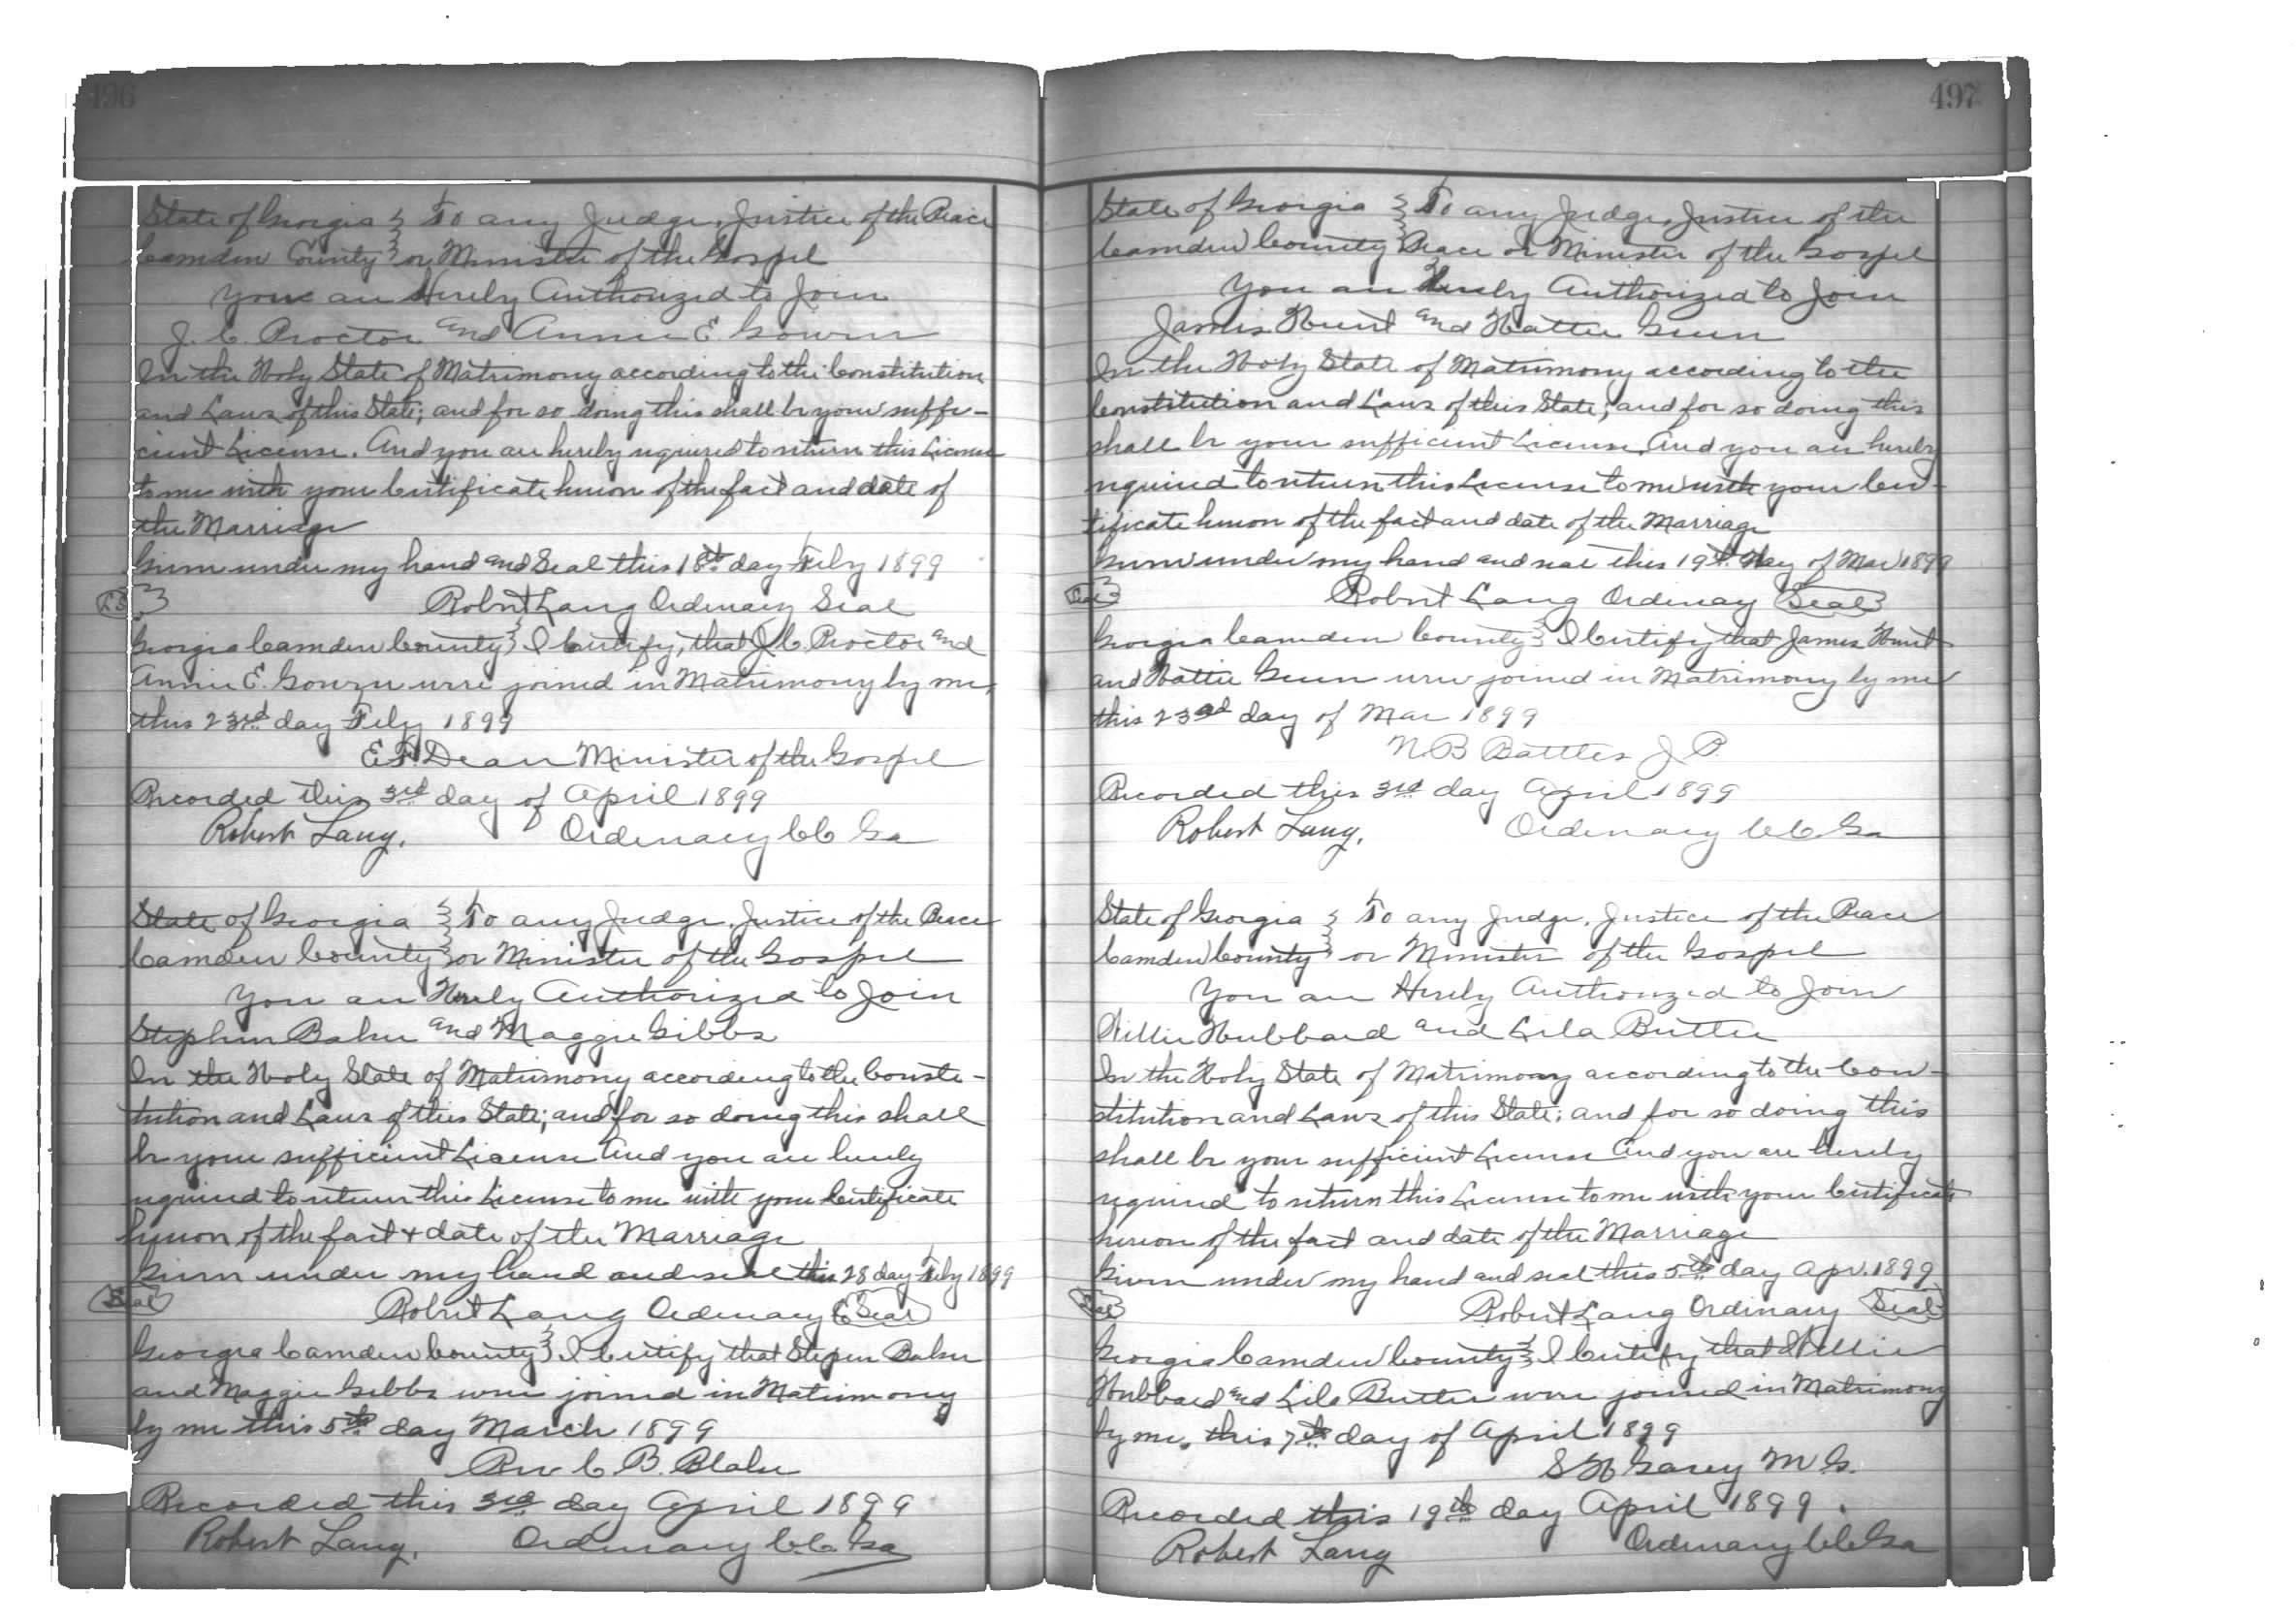 496
State of Georgia } To any Judge, Justice of the Peace
Camden County } or Minister of the Gospel
You are Hereby Authorized to Join
J. C. Proctor and Annie E. Gowen
In the Holy State of Matrimony according to the Constitution
and Laws of this State; and for so doing this shall be your suffi-
cient License. And you are hereby required to return this License
to me with your Certificate hereon of the fact and date of
the Marriage
Given under my hand and Seal this 18th day Feby 1899
L.S. Robert Lang Ordinary Seal
Georgia Camden County } I Certify, that J. C. Proctor and
Annie E. Gowen were joined in Matrimony by me,
this 23rd day Feby 1899
E.F. Dean Minister of the Gospel
Recorded this 3rd day of April 1899
Robert Lang, Ordinary CC Ga
State of Georgia } To any Judge, Justice of the Peace
Camden County } or Minister of the Gospel
You are Hereby Authorized to Join
Stephen Baker and Maggie Gibbs
In the Holy State of Matrimony according to the Consti-
tution and Laws of this State; and for so doing this shall
be your sufficient License And you are hereby
required to return this License to me with your Certificate
hereon of the fact & date of the Marriage
Given under my hand and seal this 28 day Feby 1899
Seal Robert Lang Ordinary Seal
Georgia Camden County } I Certify that Stepen Baker
and Maggie Gibbs were joined in Matrimony
by me this 5th day March 1899
Rev C B. Blake
Recorded this 3rd day April 1899
Robert Lang, Ordinary C.C. Ga
497
State of Georgia } To any Judge, Justice of the
Camden County } Peace or Minister of the Gospel
You are Hereby Authorized to Join
James Hunt and Hattie Green
In the Holy State of Matrimony according to the
Constitution and Laws of this State; and for so doing this
shall be your sufficient License, And you are hereby
required to return this License to me with your Cer-
tificate hereon of the fact and date of the Marriage
Given under my hand and seal this 19th day of Mar 1899
Seal Robert Lang Ordinay Seal
Georgia Camden County } I Certify that James Hunt
and Hattie Green were joined in Matrimony by me
this 23rd day of Mar 1899
N. B Battles J P.
Recorded this 3rd day April 1899
Robert Lang, Ordinary CC Ga
State of Georgia } To any Judge, Justice of the Peace
Camden County } or Minister of the Gospel
You are Hereby Authorized to Join
Willie Hubbard and Lila Butler
In the Holy State of Matrimony according to the Con-
stitution and Laws of this State; and for so doing this
shall be your sufficient License And you are hereby
required to return this License to me with your Certificate
hereon of the fact and date of the Marriage
Given under my hand and seal this 5th day Apr. 1899
Seal Robert Lang Ordinary Seal
Georgia Camden County } I Certify that Willie
Hubbard and Lila Butler were joined in Matrimony
by me, this 7th day of April 1899
S H Garey M G.
Recorded this 19th day April 1899.
Robert Lang Ordinary CC Ga